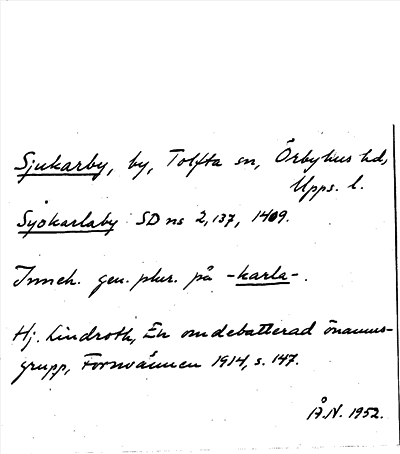 Sjukarby, by, Tolfta sn, Örbyhus hd,
Upps. l.
Syokarlaby SD ns 2,137, 1409.
Inneh. gen. plur. på -karla-.
Hj. Lindroth, En omdebatterad önamns-
grupp, Fornvännen 1914, s. 147.
Å.N. 1952.